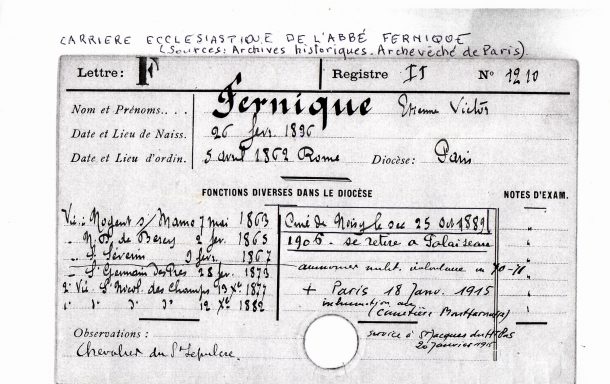 CARRIERE ECCLESIASTIQUE DE L'ABBÉ FERNIQUE
(Sources: Archives historiques. Archevêché de Paris)
Lettre: F Registre II N° 1210
Nom et Prénoms... Fernique Etienne Victor
Date et Lieu de Naiss. 26 fév. 1836
Date et Lieu d'ordin. 5 avril 1862 Rome Diocèse: Paris
FONCTIONS DIVERSES DANS LE DIOCÈSE
NOTES D'EXAM.
Vic: Nogent s/ Marne 7 mai 1863
„ N.D. de Bercy 2 fév. 1865
„ St Séverin 9 fév. 1867
„ St Germain des Prés 28 fév. 1873
2e Vic. St Nicol. des Champs 13 Xe 1877
1e d° d° d° 12 Xe 1882
Curé de Noisy le sec 25 Oct 1889
1906 - se retire à Palaiseau
aumonier milit. volontaire en 70-71
+ Paris 18 Janv. 1915
inhumation au
(cimetière Montparnasse)
service à St Jacques du Ht Pas
20 janvier 1915
Observations :
Chevalier du St Sepulcre.